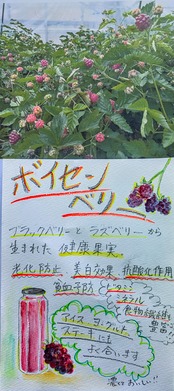 ボイセン
ベリー
ブラックベリーとラズベリーから
生まれた 健康果実
老化防止 美白効果 抗酸化作用
貧血予防 ビタミン
ミネラル
食物繊維も
豊富!
アイス ヨーグルト
ステーキにも
よく合います
濃くておいしい